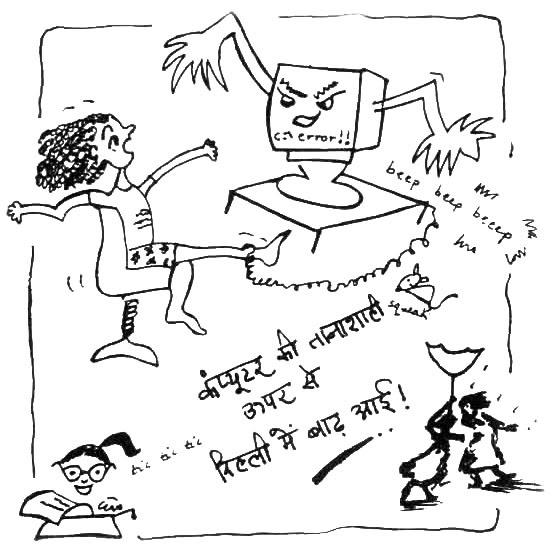 c:\ error!!
beep beep beeep
squeak
कंप्यूटर की तानाशाही
ऊपर से
दिल्ली में बाढ़ आई!
tic tic tic